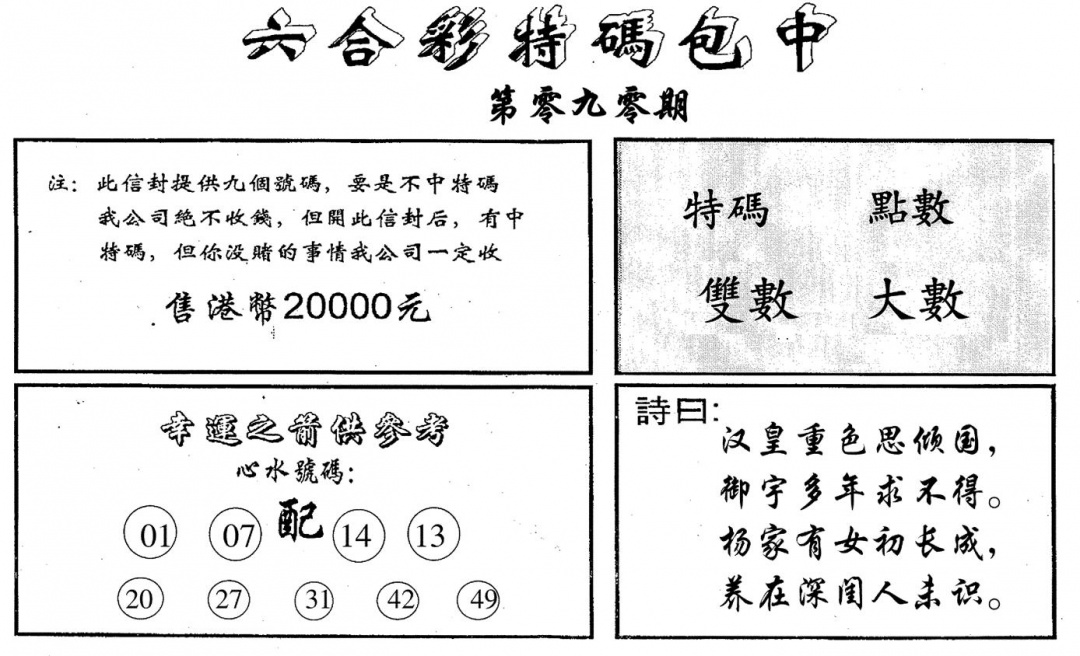 六合彩特碼包中
第零九零期
注：此信封提供九個號碼，要是不中特碼
我公司絕不收錢，但開此信封后，有中
特碼，但你没賭的事情我公司一定收
售港幣20000元
特碼 點數
雙數 大數
幸運之箭供參考
心水號碼：
01 07 配 14 13
20 27 31 42 49
詩曰：
汉皇重色思倾国，
御宇多年求不得。
杨家有女初长成，
养在深闺人未识。